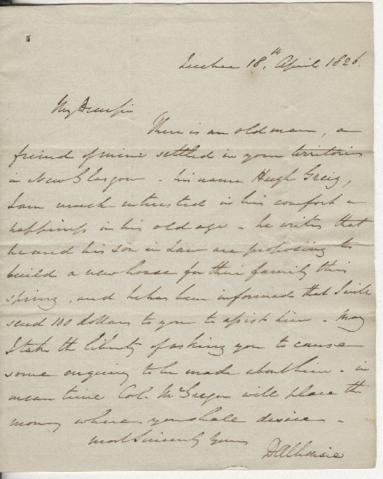 Quebec 18th April 1826.
My Dear Sir
There is an old man, a
friend of mine settled in your territories
in New Glasgow - his name Hugh Greig,
I am much interested in his comfort &
happiness in his old age - he writes that
he and his son in law are proposing to
build a new house for their family this
spring, and he has been informed that I will
send 100 dollars to you to assist him - May
I take the liberty of asking you to cause
some enquiry to be made about him - in
mean time Col. McGregor will place the
money where you shall desire -
most Sincerely Yours
Dalhousie